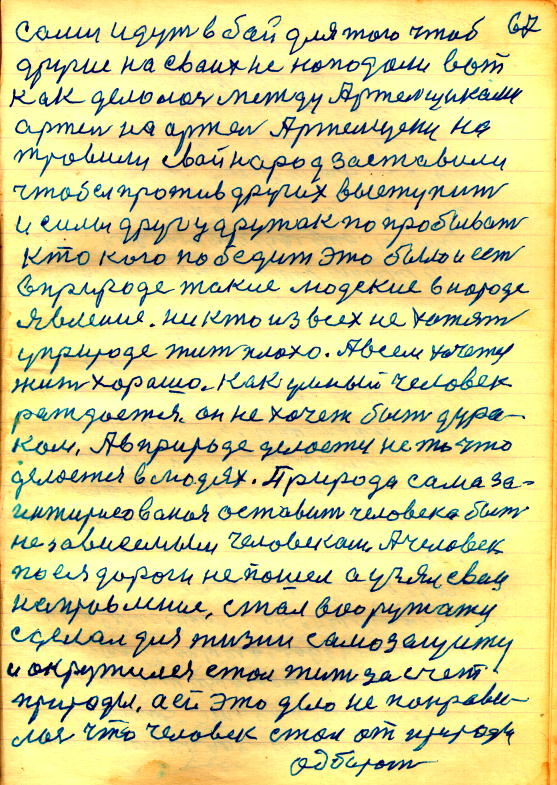 сами идут в бай для того чтоб 67
другие на сваих не нападали вот
как делолоя между Артемщиками
артел на артел
травили свай народ заставили
чтобся против других выступит
и силы друг у друга так попробыват
кто кого победит это было и ест
в природе такие людские в народе
явление. никто из всех не хотят
у природе жит плохо. А всем хочетця
жит хорошо. как умный человек
раждается. он не хочет быт дура-
ком. А в природе делоетця не то что
делоется в людях. Природа сама за-
интирисованая оставит человека быт
независемым человекам. А человек
по ея дороги не пошел а узял сваи
напровление, стал вооружатця
сделал для жизни самозащиту
и окружился стал жит за счет
природы, а ей это дело не понрави-
лоя что человек стал от природы
одбират